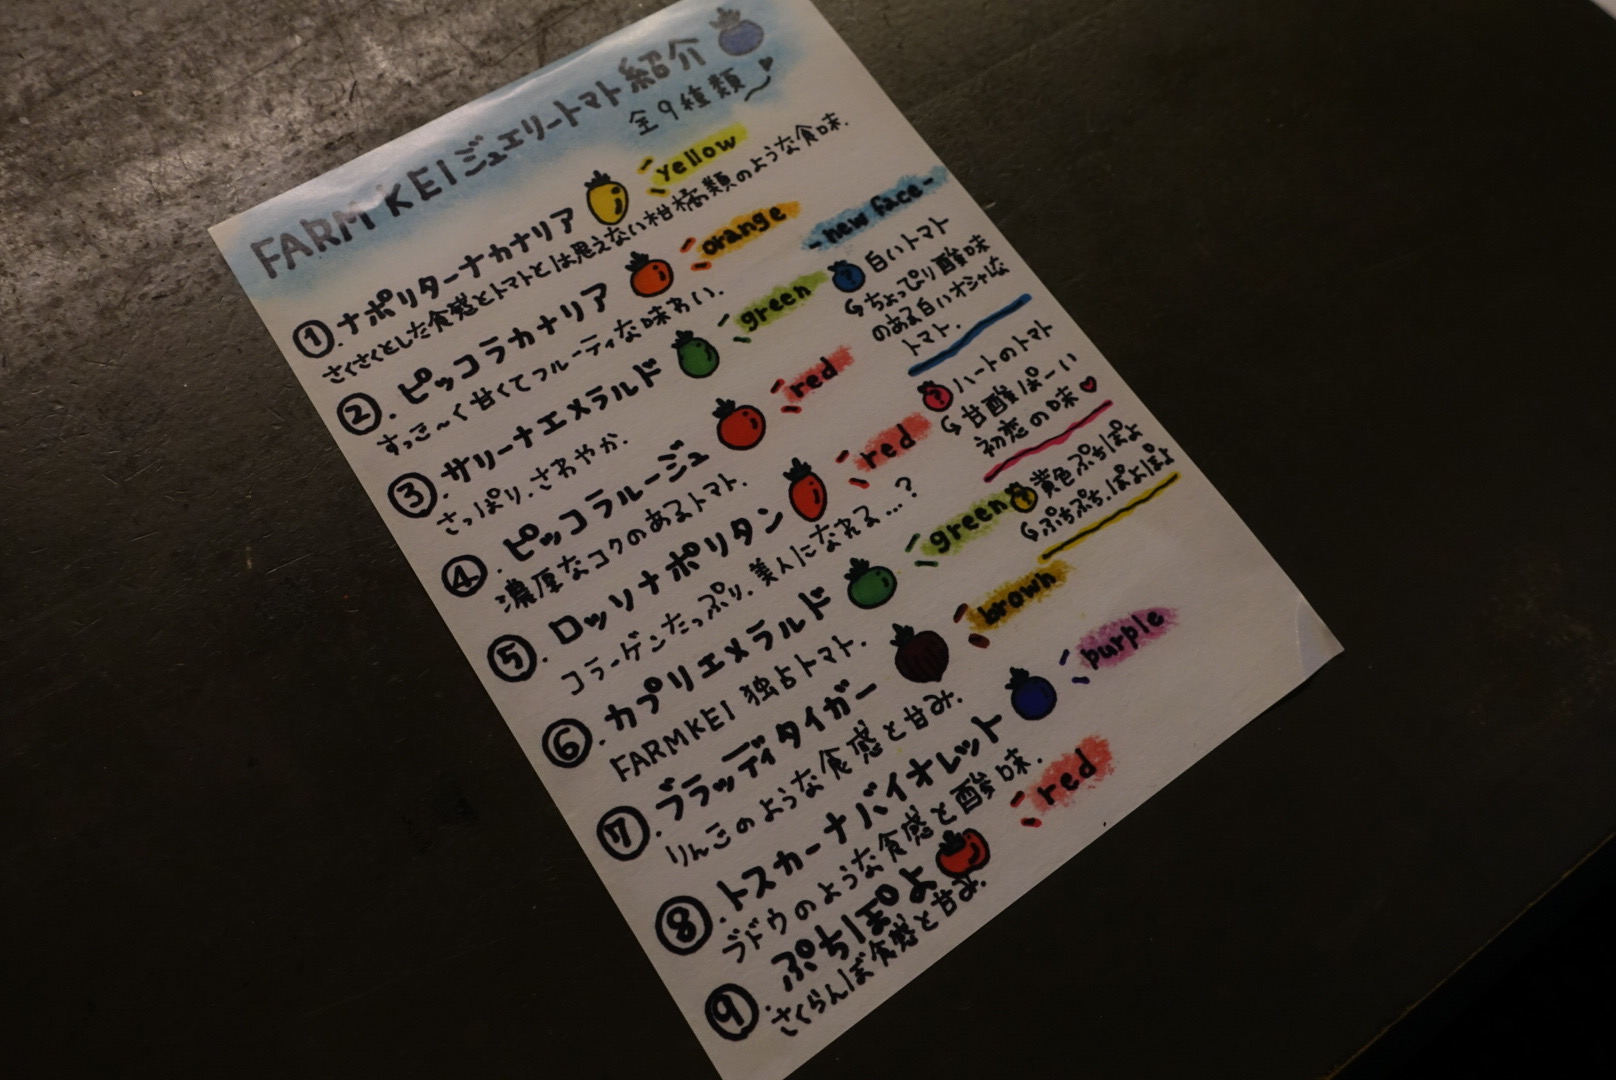 FARM KEI ジュエリートマト紹介
全9種類
①.ナポリターナカナリア
yellow
さくさくとした食感とトマトとは思えない柑橘類のような食味.
②.ピッコラカナリア
orange
すっご~く甘くてフルーティな味わい.
③.サリーナエメラルド
green
さっぱり.さわやか.
④.ピッコラルージュ
red
濃厚なコクのあるトマト.
⑤.ロッソナポリタン
red
コラーゲンたっぷり.美人になれる…?
⑥.カプリエメラルド
green
FARMKEI 独占トマト.
⑦.ブラッディタイガー
brown
りんごのような食感と甘み.
⑧.トスカーナバイオレット
purple
ブドウのような食感と酸味.
⑨.ぷちぽよ
red
さくらんぼ食感と甘み.
-new face-
? 白いトマト
ちょっぴり酸味
のある白いオシャレな
トマト.
? ハートのトマト
甘酸ぱーい
初恋の味♥
? 黄色ぷちぽよ
ぷちぷち.ぽよぽよ